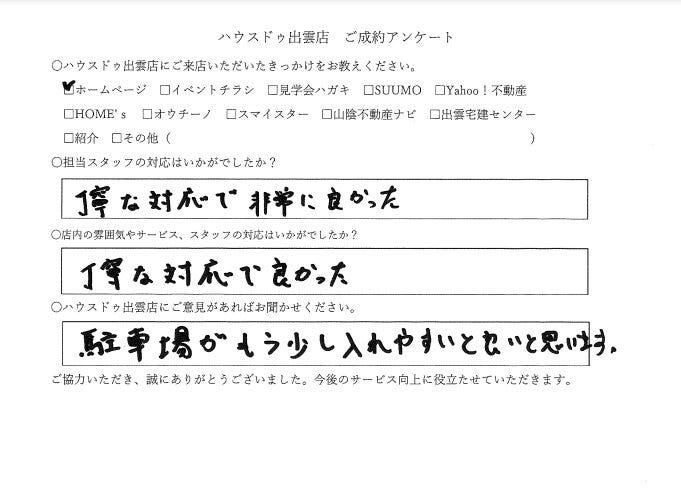 ハウスドゥ出雲店　ご成約アンケート
○ハウスドゥ出雲店にご来店いただいたきっかけをお教えください。
☑ホームページ　□イベントチラシ　□見学会ハガキ　□SUUMO　□Yahoo！不動産
□HOME's　□オウチーノ　□スマイスター　□山陰不動産ナビ　□出雲宅建センター
□紹介　□その他（　　　　　　　　　　　　　　　　　　　　　　　　　　　　）
○担当スタッフの対応はいかがでしたか？
丁寧な対応で非常に良かった
○店内の雰囲気やサービス、スタッフの対応はいかがでしたか？
丁寧な対応で良かった
○ハウスドゥ出雲店にご意見があればお聞かせください。
駐車場がもう少し入れやすいと良いと思います。
ご協力いただき、誠にありがとうございました。今後のサービス向上に役立たせていただきます。